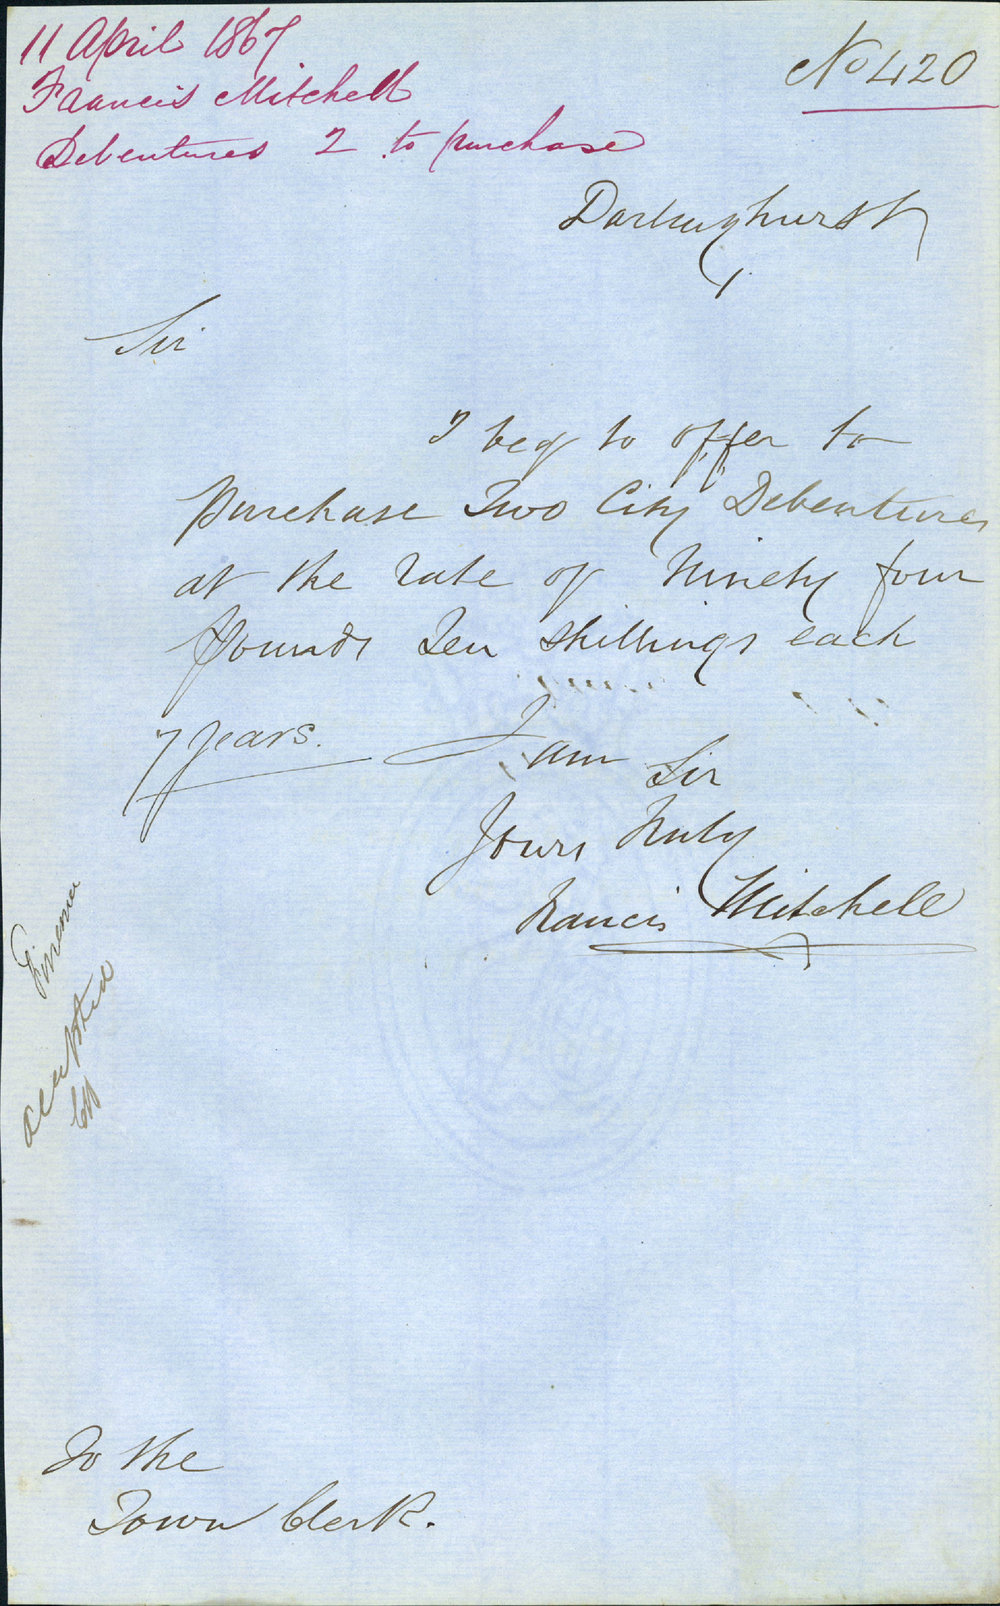 11 April 1867
Francis Mitchell
Debentures 2 to purchase
No 420
Darlinghurst
Sir
I beg to offer to
purchase Two City Debentures
at the rate of Ninety four
pounds Ten shillings each
7 years.
I am Sir
Yours truly
Francis Mitchell
Finance
accepted
To the
Town Clerk.